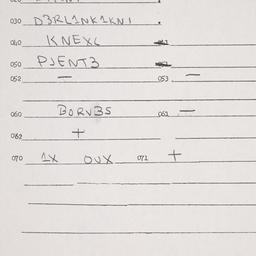 030 D3RL1NK1KN1
040 KNEXC
050 PJENT3
052 — 053 —
060 BORV3S 061 —
062 +
070 1X OVX 071 +